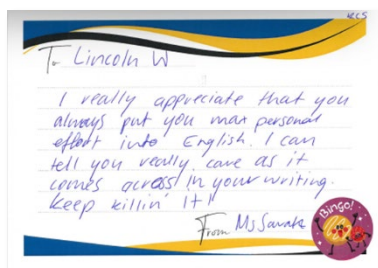 To Lincoln W
I really appreciate that you
always put you max personal
effort into English. I can
tell you really care as it
comes across in your writing.
Keep killin' It!
From Ms
Bingo!